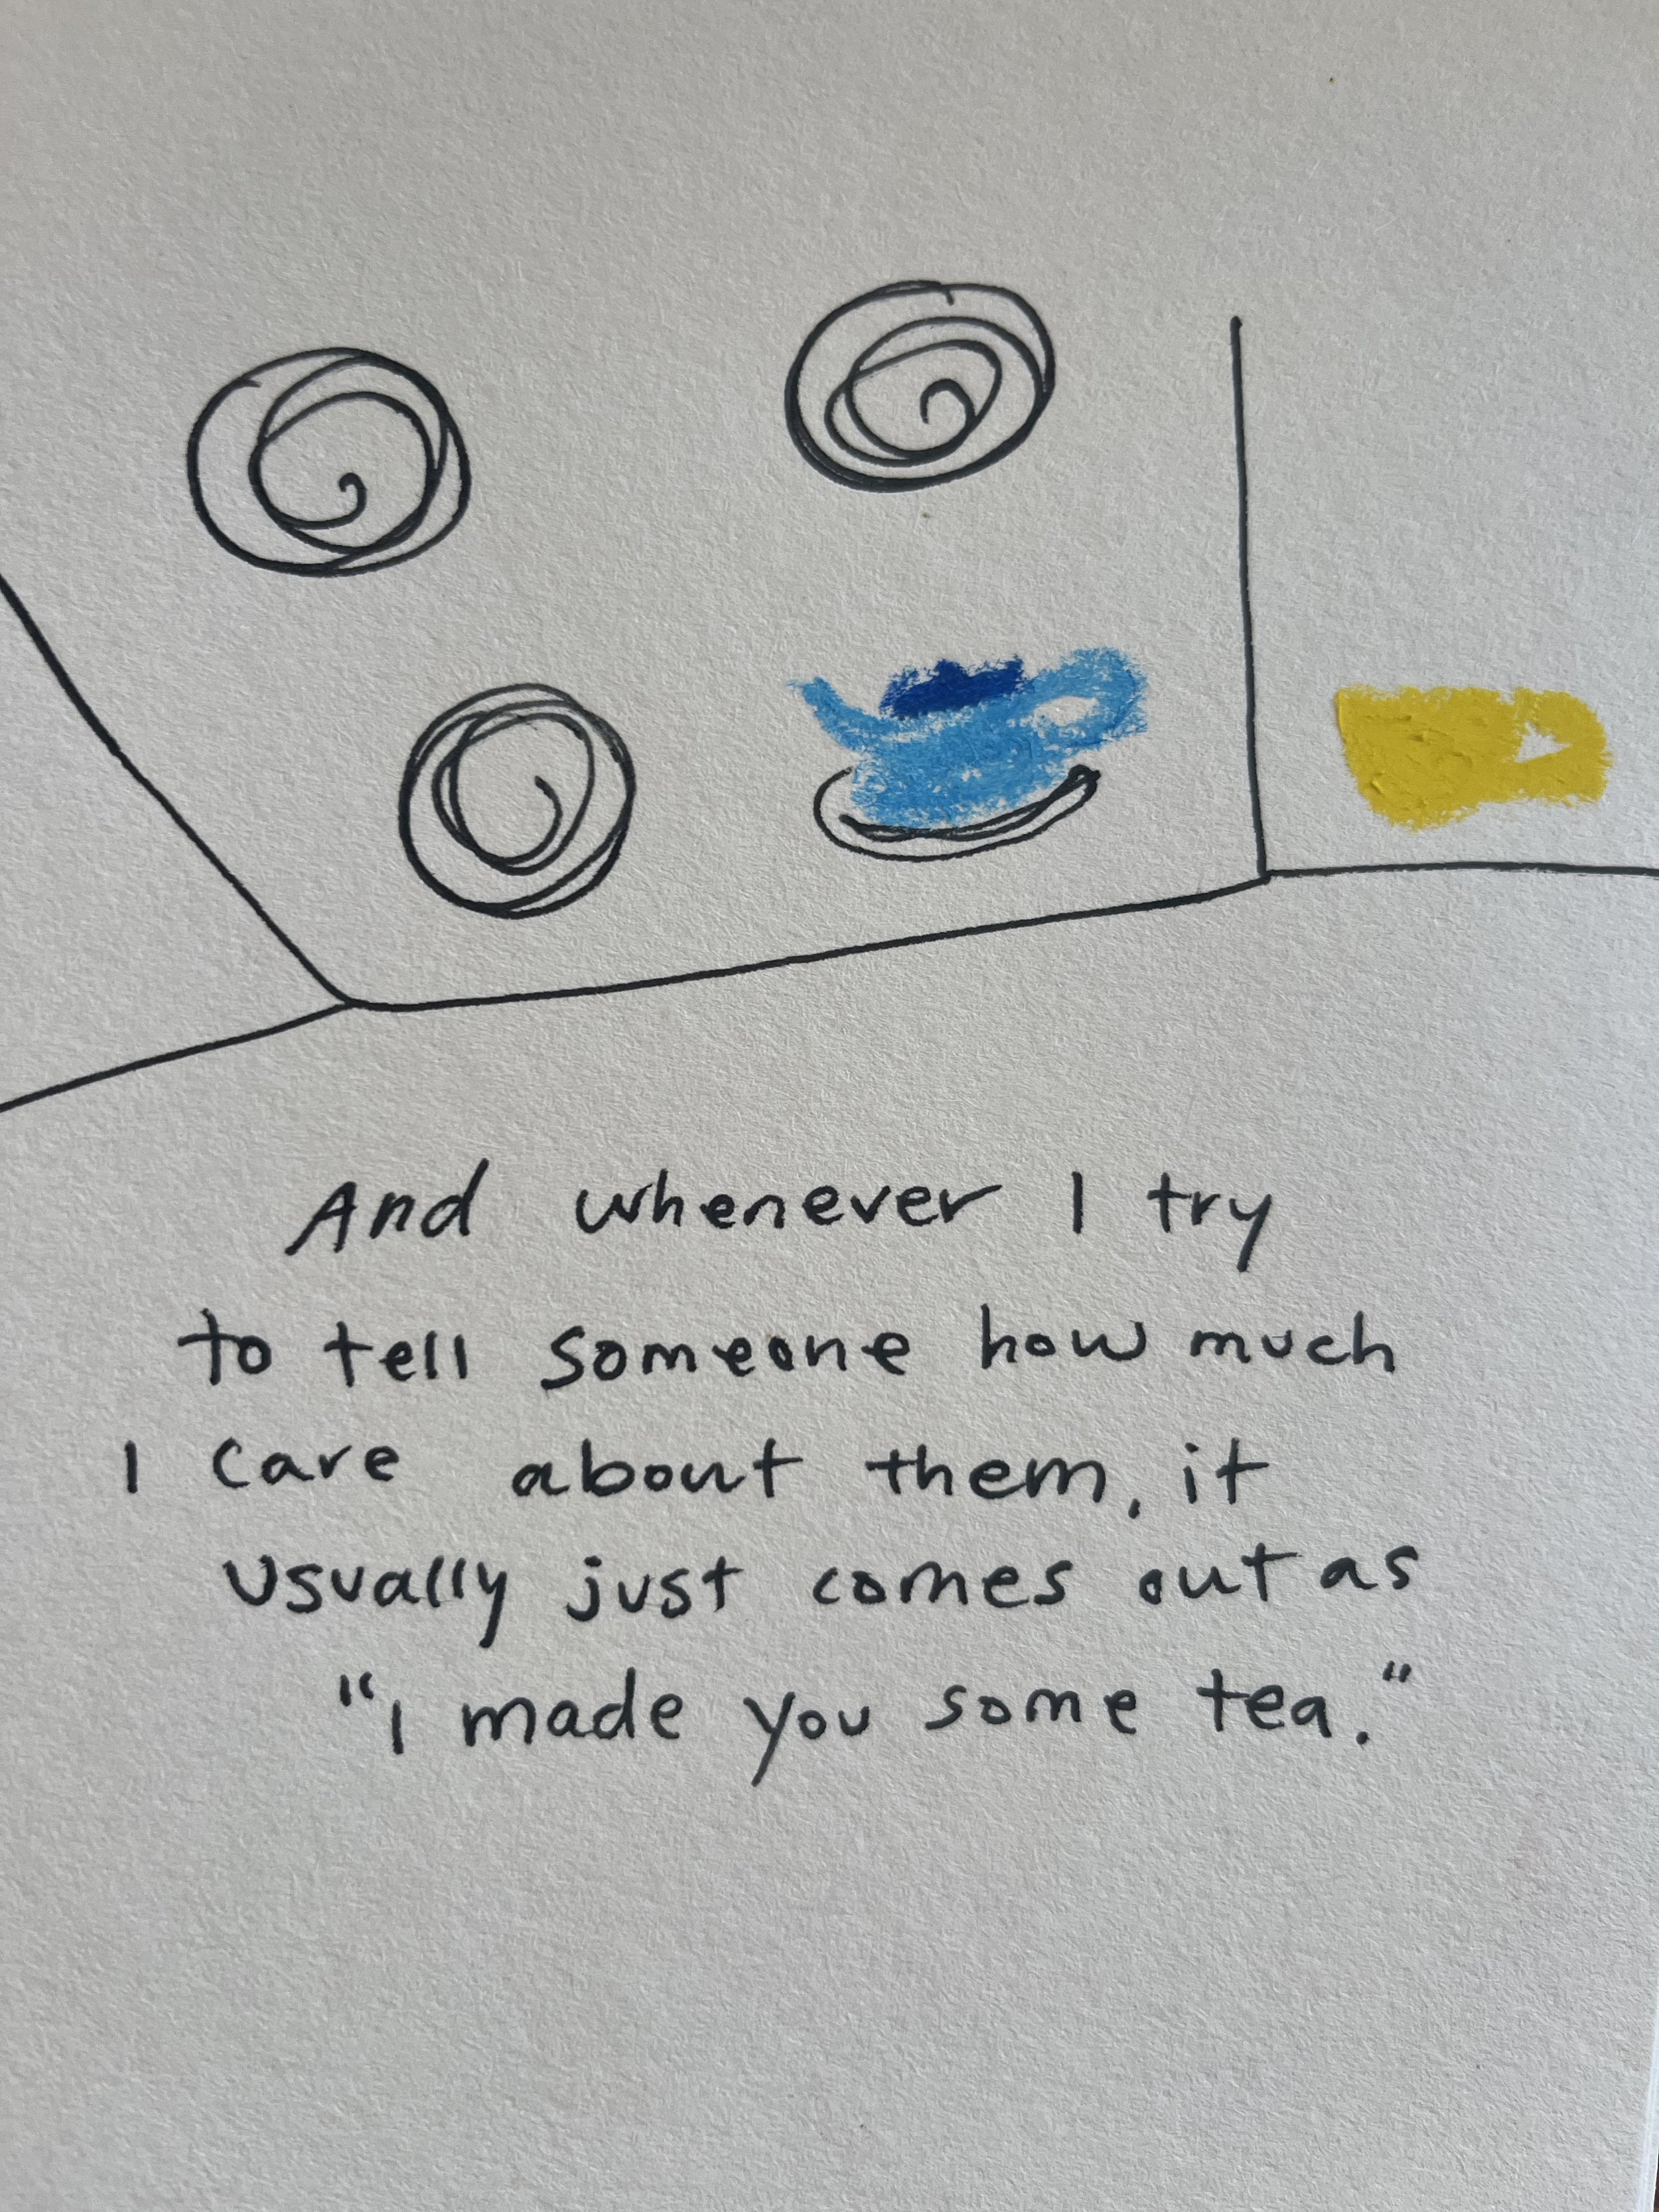 And whenever I try
to tell someone how much
I care about them, it
usually just comes out as
"I made you some tea."